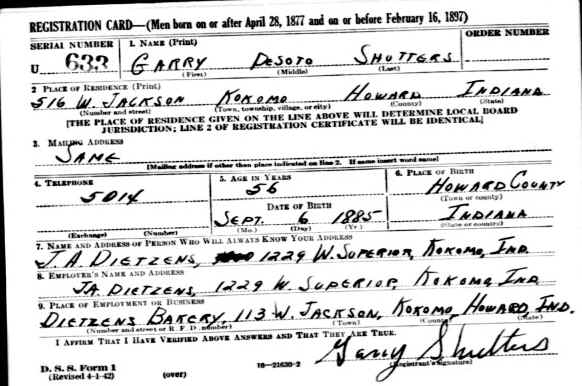 REGISTRATION CARD—(Men born on or after April 28, 1877 and on or before February 16, 1897)
SERIAL NUMBER 1. NAME (Print) ORDER NUMBER
U 633 GARRY DESOTO SHUTTERS
(First) (Middle) (Last)
2 PLACE OF RESIDENCE (Print)
516 W. JACKSON KOKOMO HOWARD INDIANA
(Number and street) (Town, township, village, or city) (County) (State)
[THE PLACE OF RESIDENCE GIVEN ON THE LINE ABOVE WILL DETERMINE LOCAL BOARD
JURISDICTION; LINE 2 OF REGISTRATION CERTIFICATE WILL BE IDENTICAL]
3. MAILING ADDRESS
SAME
[Mailing address if other than place indicated on line 2. If same insert word same]
4. TELEPHONE 5. AGE IN YEARS 6. PLACE OF BIRTH
5014 56 HOWARD COUNTY
(Town or county)
DATE OF BIRTH
SEPT. 6 1885 INDIANA
(Exchange) (Number) (Mo.) (Day) (Yr.) (State or country)
7. NAME AND ADDRESS OF PERSON WHO WILL ALWAYS KNOW YOUR ADDRESS
J.A. DIETZENS, 1229 W. SUPERIOR, KOKOMO, IND.
8. EMPLOYER'S NAME AND ADDRESS
JA DIETZENS, 1229 W. SUPERIOR, KOKOMO, IND.
9. PLACE OF EMPLOYMENT OR BUSINESS
DIETZENS BAKERY, 113 W. JACKSON, KOKOMO, HOWARD, IND.
(Number and street or R. F. D. number) (Town) (County) (State)
I AFFIRM THAT I HAVE VERIFIED ABOVE ANSWERS AND THAT THEY ARE TRUE.
Garry Shutters
D. S. S. Form 1 16—21630-2 (Registrant's signature)
(Revised 4-1-42) (over)